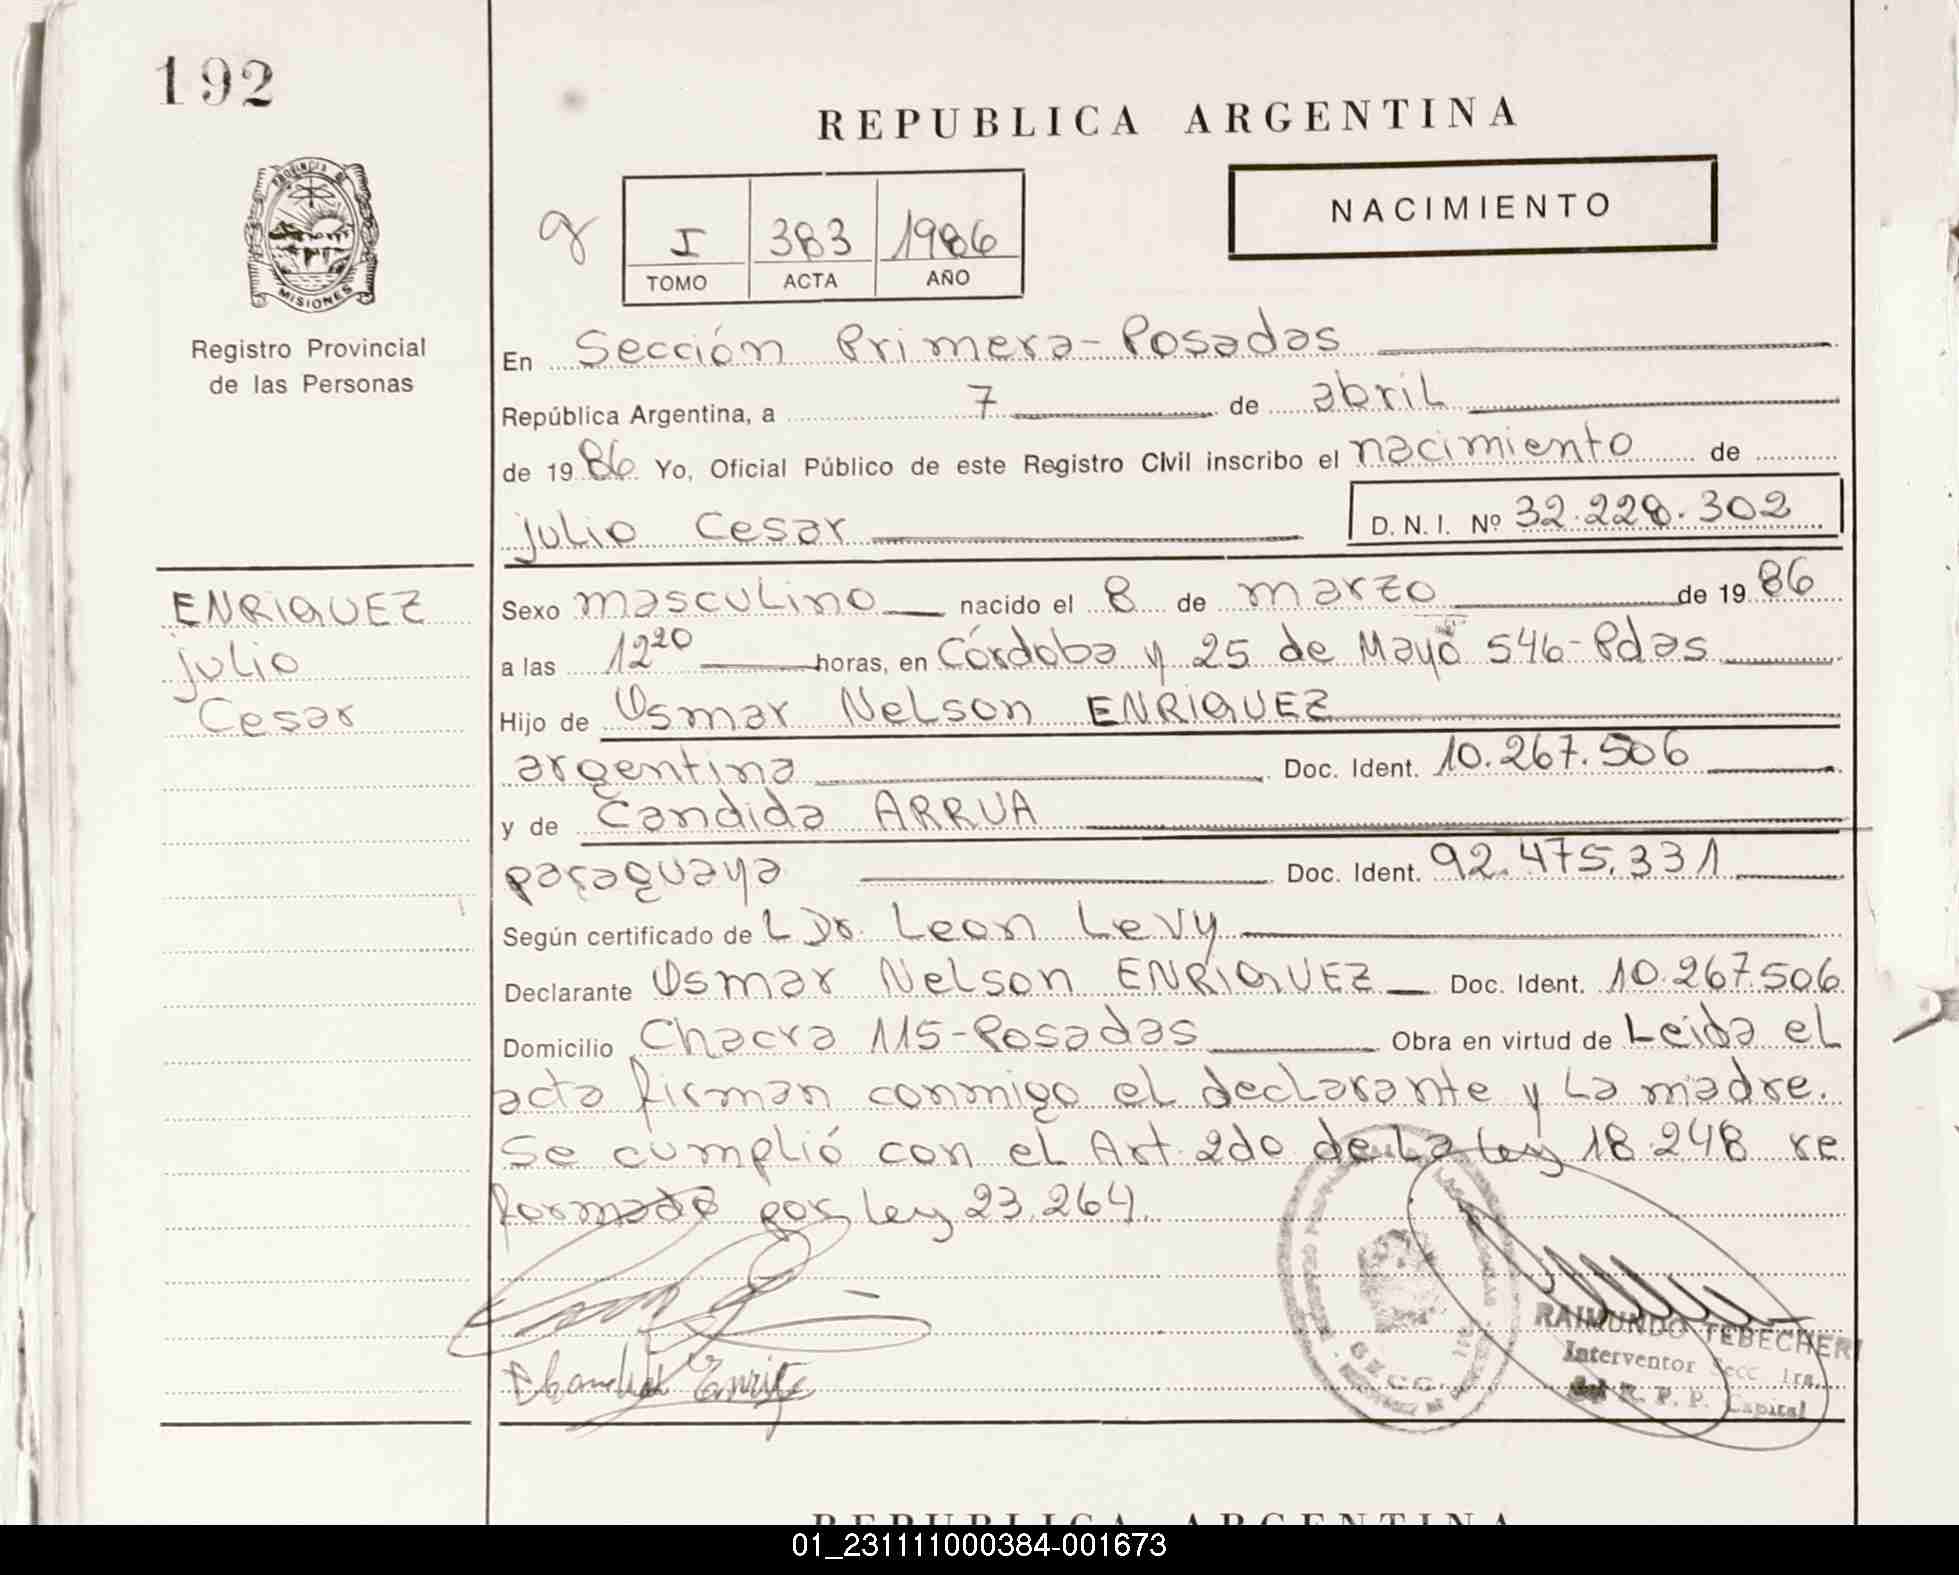 192
REPUBLICA ARGENTINA
NACIMIENTO
PROVINCIA DE
MISIONES
Registro Provincial
de las Personas
I 383 1986
TOMO ACTA AÑO
En Sección Primera - Posadas
República Argentina, a 7 de abril
de 1986 Yo, Oficial Público de este Registro Civil inscribo el nacimiento de
julio Cesar D. N. I. Nº 32.228.302
ENRIQUEZ
julio
Cesar
Sexo masculino nacido el 8 de marzo de 1986
a las 12 20 horas, en Córdoba y 25 de Mayo 546-Pdas
Hijo de Osmar Nelson ENRIQUEZ
argentina Doc. Ident. 10.267.506
y de Candida ARRUA
paraguaya Doc. Ident. 92.475.331
Según certificado de L Dr. Leon Levy
Declarante Osmar Nelson ENRIQUEZ Doc. Ident. 10.267.506
Domicilio Chacra 115-Posadas Obra en virtud de Leida el
acta firman conmigo el declarante y La madre.
Se cumplió con el Art. 2do de La Ley 18.248 re
formado por Ley 23.264.
RAIMUNDO TEBECHERI
Interventor Secc. 1ra.
del R. P. P. Capital
REPUBLICA ARGENTINA
01_231111000384-001673